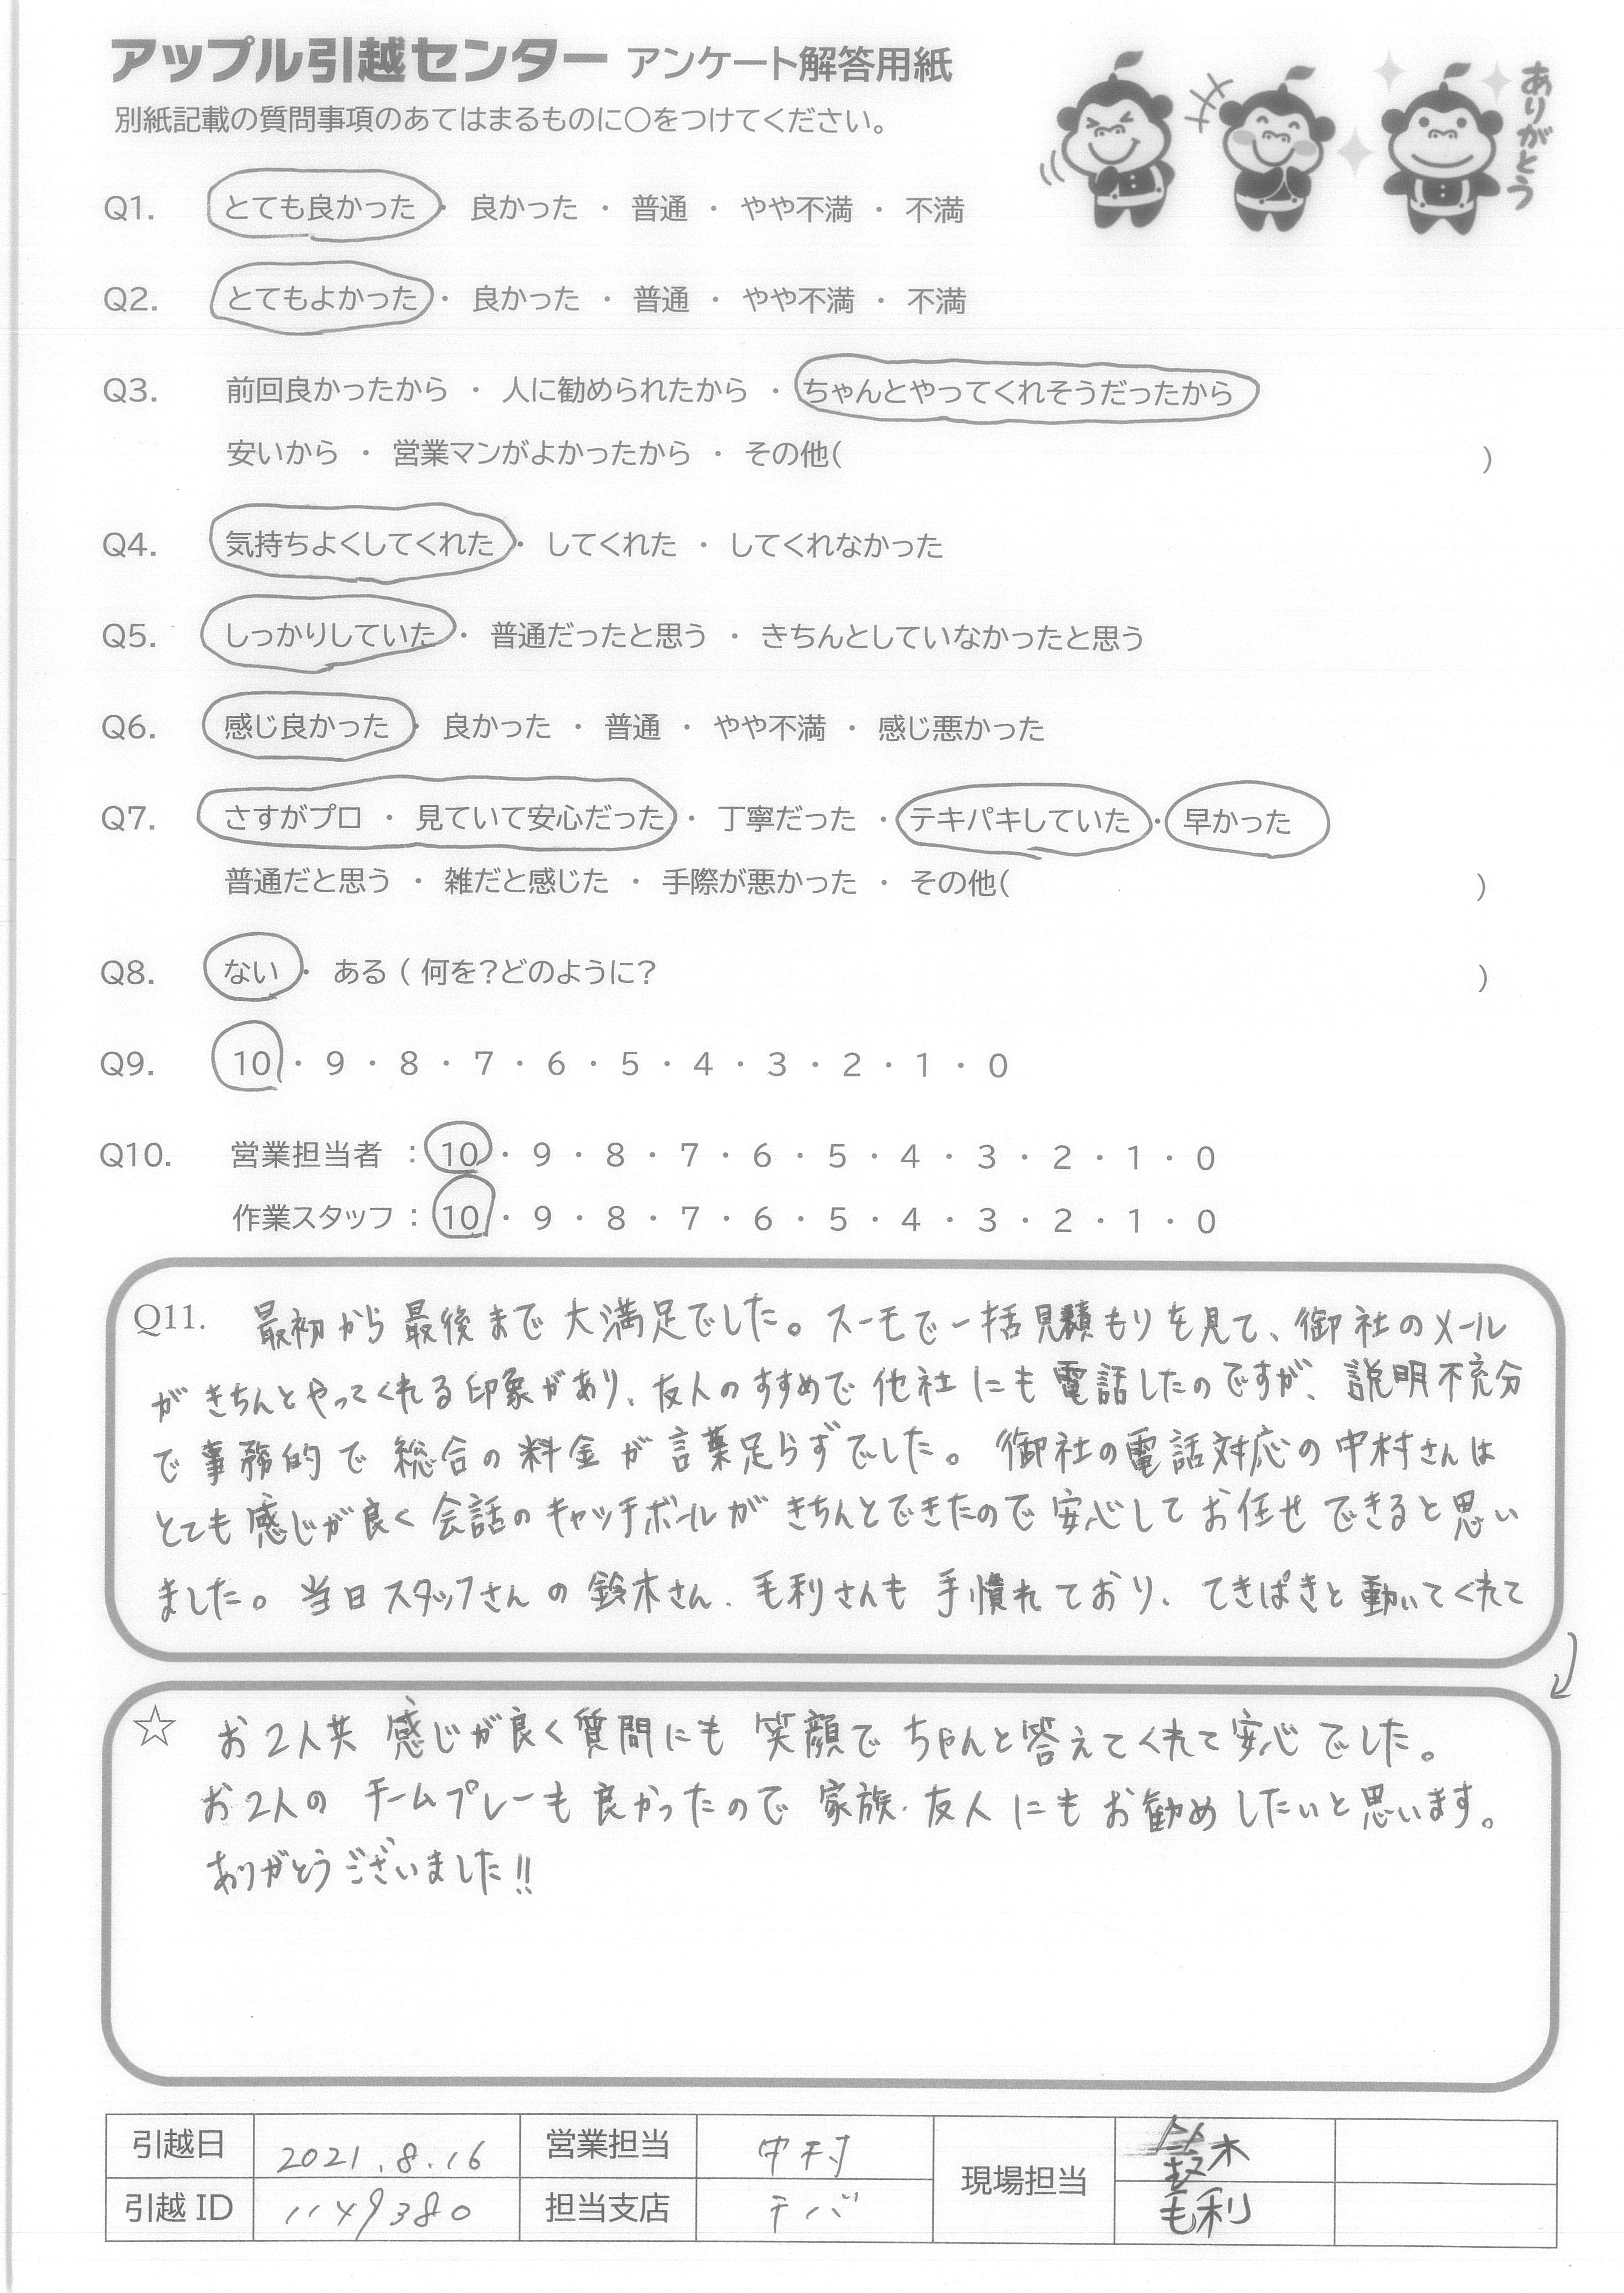 アップル引越センター アンケート解答用紙
別紙記載の質問事項のあてはまるものに○をつけてください。
ありがとう
Q1. とても良かった ・ 良かった ・ 普通 ・ やや不満 ・ 不満
Q2. とてもよかった ・ 良かった ・ 普通 ・ やや不満 ・ 不満
Q3. 前回良かったから ・ 人に勧められたから ・ ちゃんとやってくれそうだったから
安いから ・ 営業マンがよかったから ・ その他( )
Q4. 気持ちよくしてくれた ・ してくれた ・ してくれなかった
Q5. しっかりしていた ・ 普通だったと思う ・ きちんとしていなかったと思う
Q6. 感じ良かった ・ 良かった ・ 普通 ・ やや不満 ・ 感じ悪かった
Q7. さすがプロ ・ 見ていて安心だった ・ 丁寧だった ・ テキパキしていた ・ 早かった
普通だと思う ・ 雑だと感じた ・ 手際が悪かった ・ その他( )
Q8. ない ・ ある ( 何を?どのように? )
Q9. 10 ・ 9 ・ 8 ・ 7 ・ 6 ・ 5 ・ 4 ・ 3 ・ 2 ・ 1 ・ 0
Q10. 営業担当者 : 10 ・ 9 ・ 8 ・ 7 ・ 6 ・ 5 ・ 4 ・ 3 ・ 2 ・ 1 ・ 0
作業スタッフ : 10 ・ 9 ・ 8 ・ 7 ・ 6 ・ 5 ・ 4 ・ 3 ・ 2 ・ 1 ・ 0
Q11. 最初から最後まで大満足でした。スーモで一括見積もりを見て、御社のメール
がきちんとやってくれる印象があり、友人のすすめで他社にも電話したのですが、説明不充分
で事務的で総合の料金が言葉足らずでした。御社の電話対応の中村さんは
とても感じが良く会話のキャッチボールがきちんとできたので安心してお任せできると思い
ました。当日スタッフさんの鈴木さん、毛利さんも手慣れており、てきぱきと動いてくれて
☆ お2人共感じが良く質問にも笑顔でちゃんと答えてくれて安心でした。
お2人のチームプレーも良かったので家族、友人にもお勧めしたいと思います。
ありがとうございました!!
引越日 2021.8.16 営業担当 中村 現場担当 鈴木
引越ID 1149380 担当支店 チバ 毛利